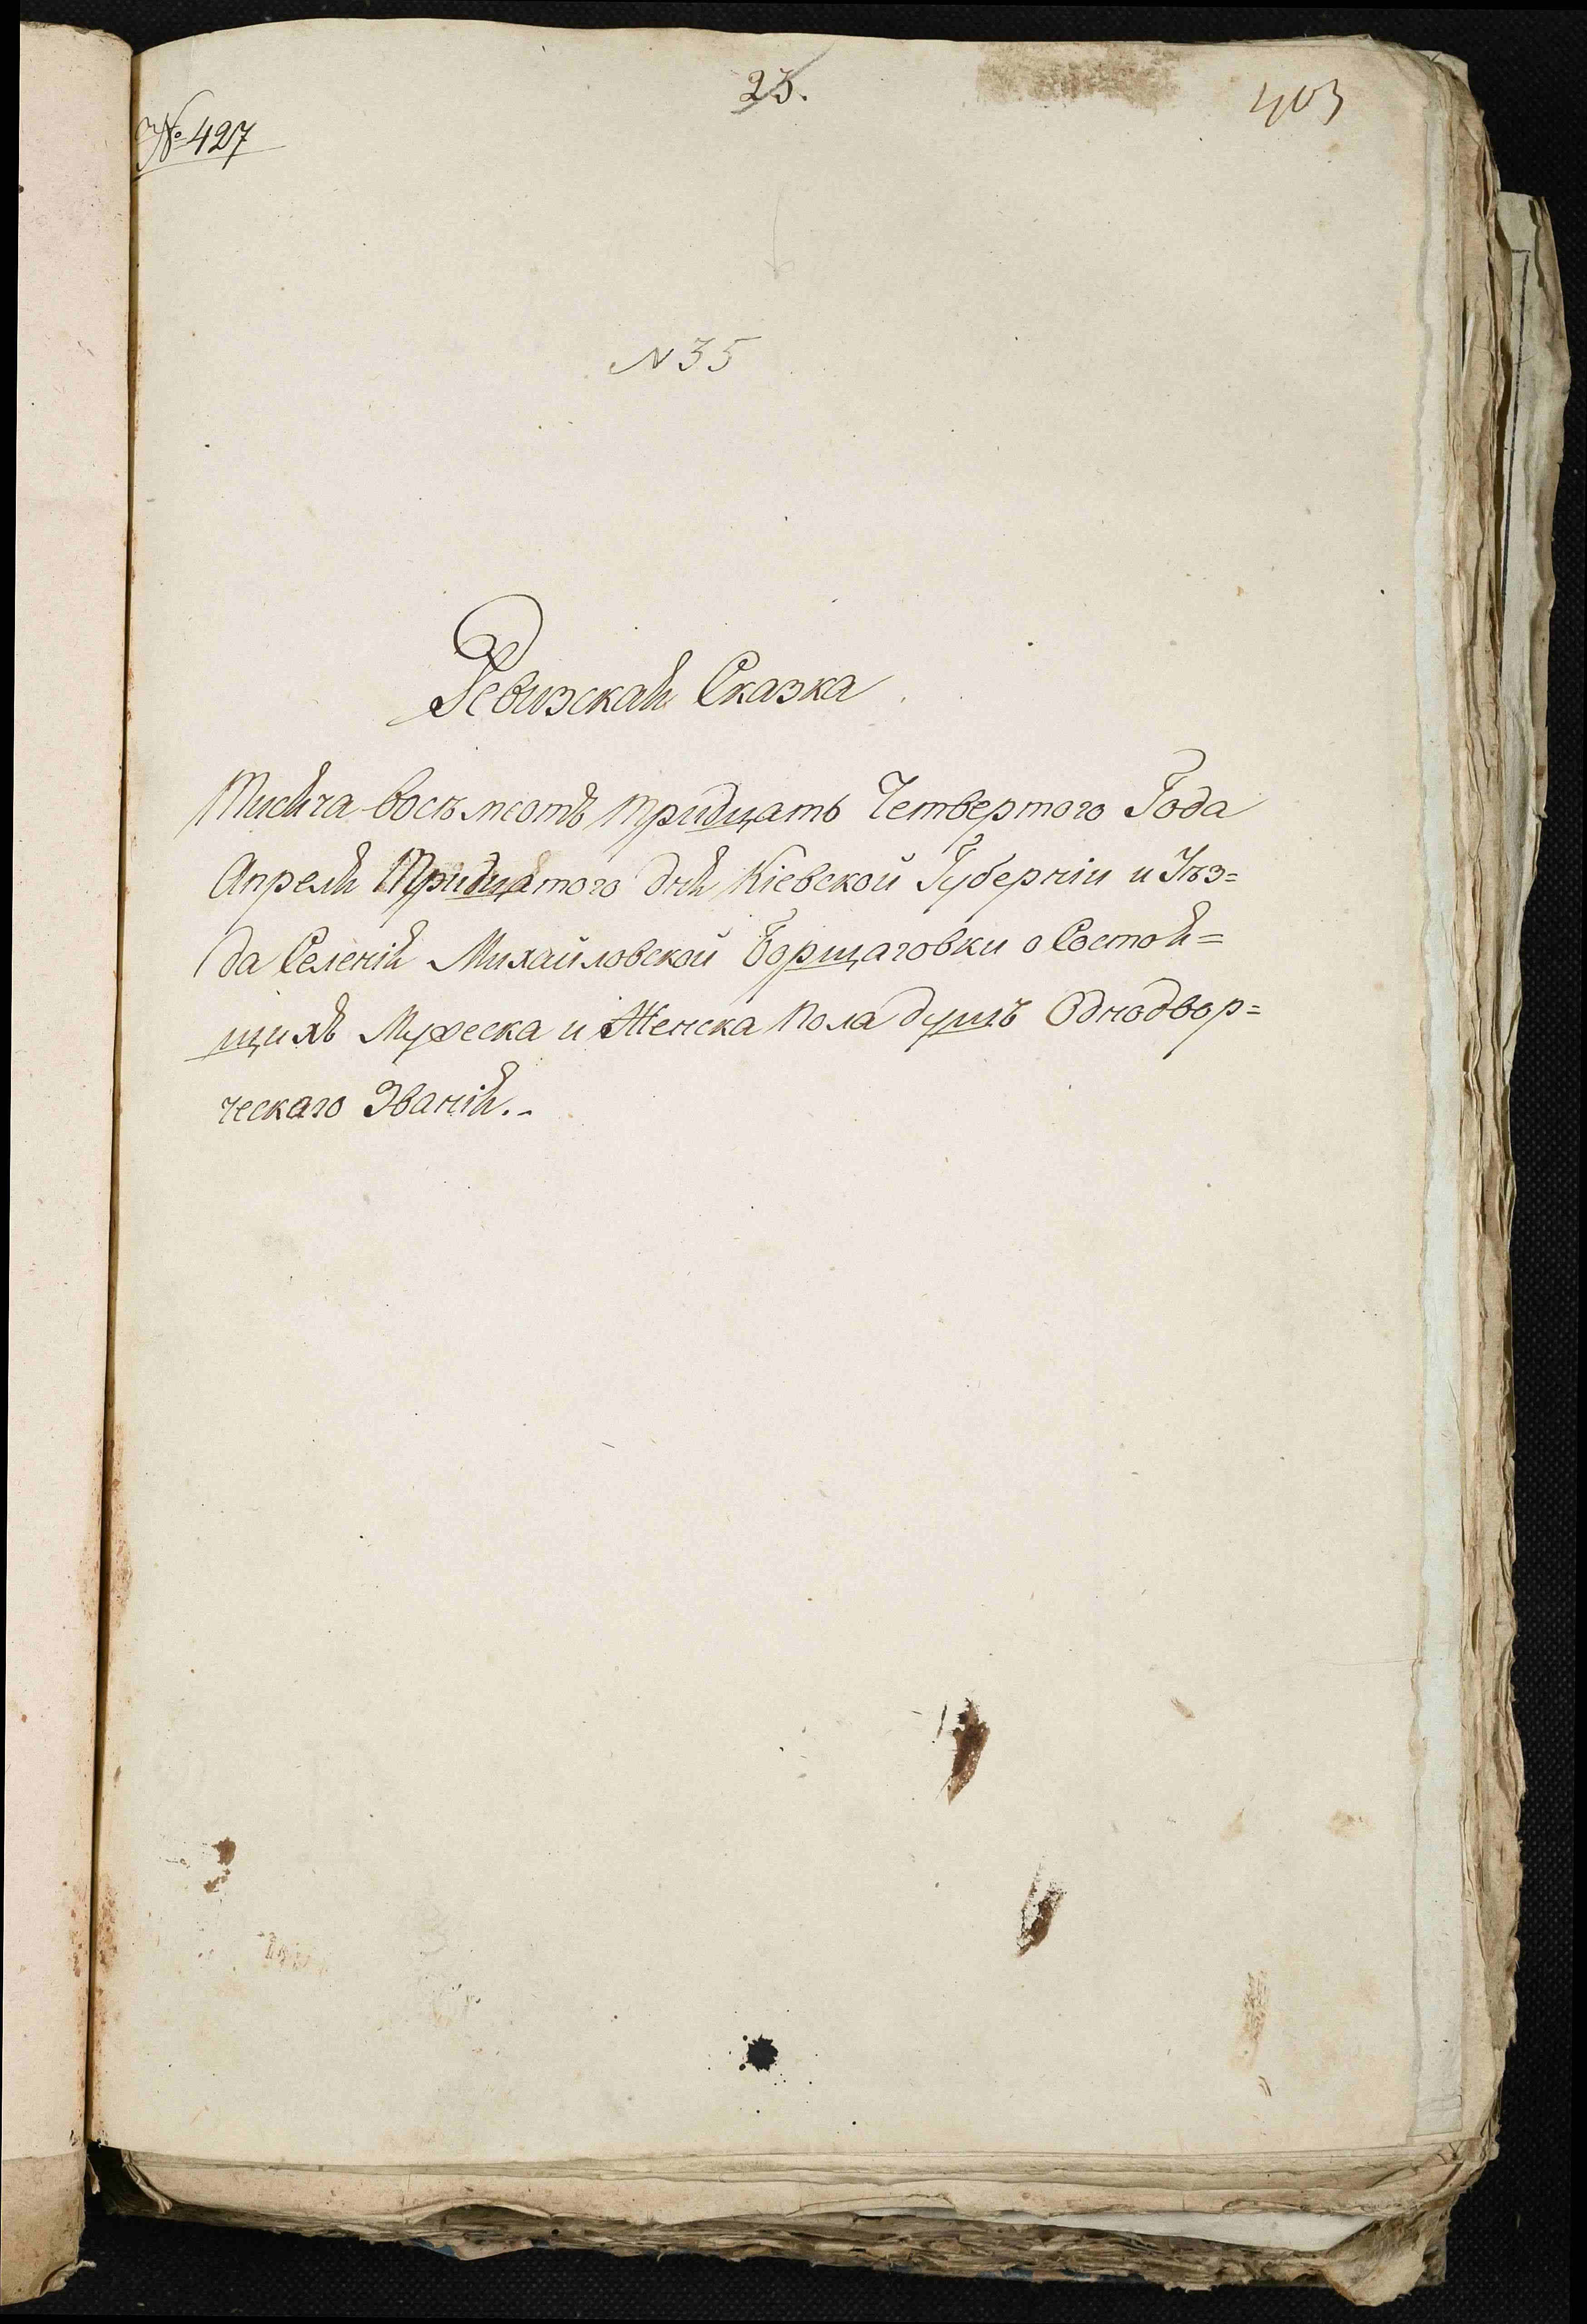 23.
403
№ 427
N 35
Ревизская Сказка
Тисяча восѣмсотъ тридцать Четвертого Года
Апреля Тридцятого дня Кіевской Губерніи и Уѣз=
да Селенія Михайловской Борщаговки о Состоя=
щихъ Мужеска и Женска пола душъ Однодвор=
ческаго Званія.